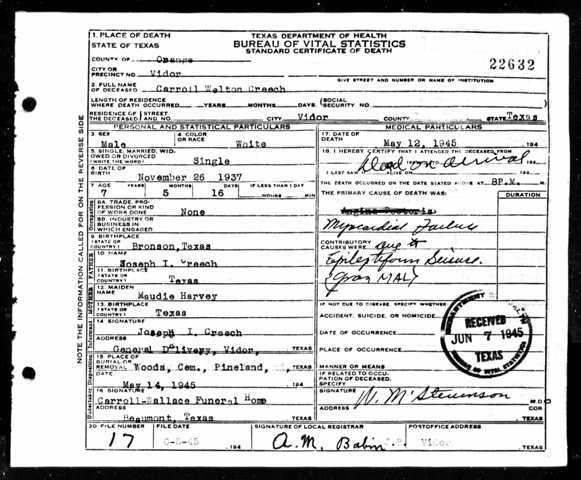 1. PLACE OF DEATH
STATE OF TEXAS
TEXAS DEPARTMENT OF HEALTH
BUREAU OF VITAL STATISTICS
STANDARD CERTIFICATE OF DEATH
COUNTY OF Orange
22632
CITY OR
PRECINCT NO. Vidor
GIVE STREET AND NUMBER OR NAME OF INSTITUTION
2. FULL NAME
OF DECEASED Carroll Welton Creech
LENGTH OF RESIDENCE
WHERE DEATH OCCURRED YEARS MONTHS DAYS
(SOCIAL
SECURITY NO.
RESIDENCE OF (STREET
THE DECEASED (AND NO. CITY Vidor COUNTY STATE Texas
PERSONAL AND STATISTICAL PARTICULARS
3. SEX
Male
4. COLOR
OR RACE White
5. SINGLE, MARRIED, WID
OWED OR DIVORCED
(WRITE THE WORD) Single
6. DATE OF
BIRTH November 26 1937
7. AGE YEARS MONTHS DAYS IF LESS THAN 1 DAY
7 5 16 HOURS MIN
8A. TRADE, PRO-
FESSION OR KIND
OF WORK DONE None
8B. INDUSTRY OR
BUSINESS IN
WHICH ENGAGED
9. BIRTHPLACE
(STATE OR
COUNTRY) Bronson, Texas
10. NAME
Joseph I. Creech
11. BIRTHPLACE
(STATE OR
COUNTRY) Texas
12. MAIDEN
NAME Maudie Harvey
13. BIRTHPLACE
(STATE OR
COUNTRY) Texas
14. SIGNATURE
Joseph I. Creech
ADDRESS
General Delivery, Vidor, TEXAS
15. PLACE OF
BURIAL OR
REMOVAL Woods, Cem., Pineland, TEXAS
DATE
May 14, 1945 194
16. SIGNATURE
Carroll-Wallace Funeral Home
ADDRESS
Beaumont, Texas TEXAS
MEDICAL PARTICULARS
17. DATE OF
DEATH May 12, 1945 194
18. I HEREBY CERTIFY THAT I ATTENDED THE DECEASED FROM
Dead on arrival
I LAST SAW ALIVE ON
THE DEATH OCCURRED ON THE DATE STATED ABOVE AT 8P. M.
THE PRIMARY CAUSE OF DEATH WAS: DURATION
Angina Pectoris
Myocardial Failure
CONTRIBUTORY
CAUSES WERE: due to
Epileptiform Seizure.
(gran MAL)
IF NOT DUE TO DISEASE, SPECIFY WHETHER
ACCIDENT, SUICIDE, OR HOMICIDE
DATE OF OCCURRENCE
PLACE OF OCCURRENCE
MANNER OR MEANS
IF RELATED TO OCCU-
PATION OF DECEASED,
SPECIFY
SIGNATURE
W. McStevenson M.D.
ADDRESS COR
TEXAS
RECEIVED
JUN 7 1945
TEXAS
BU. OF VITAL STATISTICS
20. FILE NUMBER
17
FILE DATE
194
SIGNATURE OF LOCAL REGISTRAR
A.M. Babin J.P.
POSTOFFICE ADDRESS
Vidor TEXAS
NOTE THE INFORMATION CALLED FOR ON THE REVERSE SIDE
Occupation
FATHER
MOTHER
Informant
Disposition
Undertaker